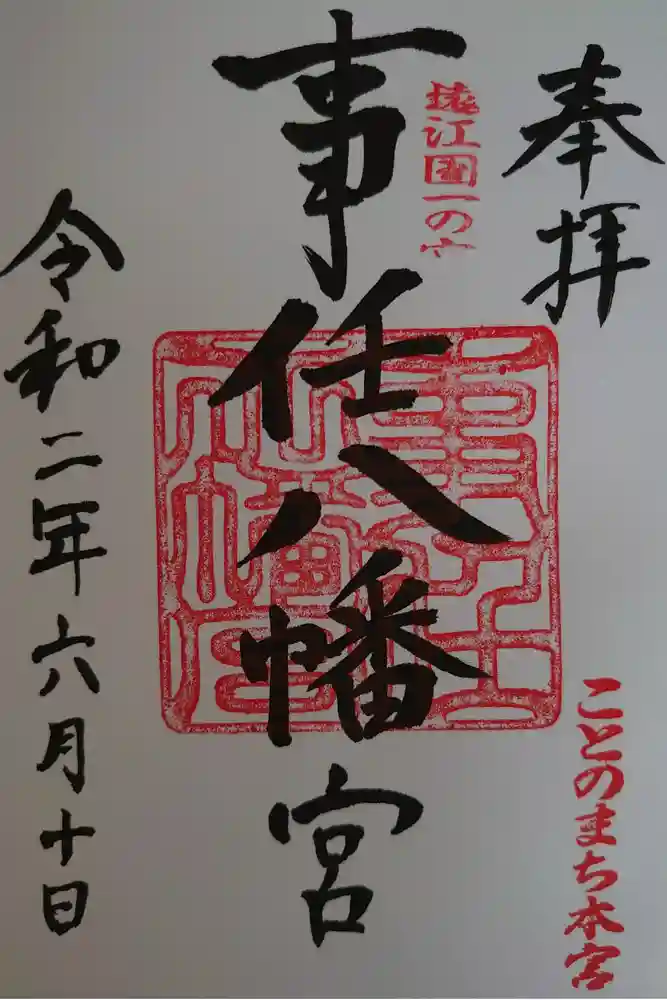 奉拝
ことのまち本宮
遠江国一の宮
事任八幡宮
令和二年六月十日